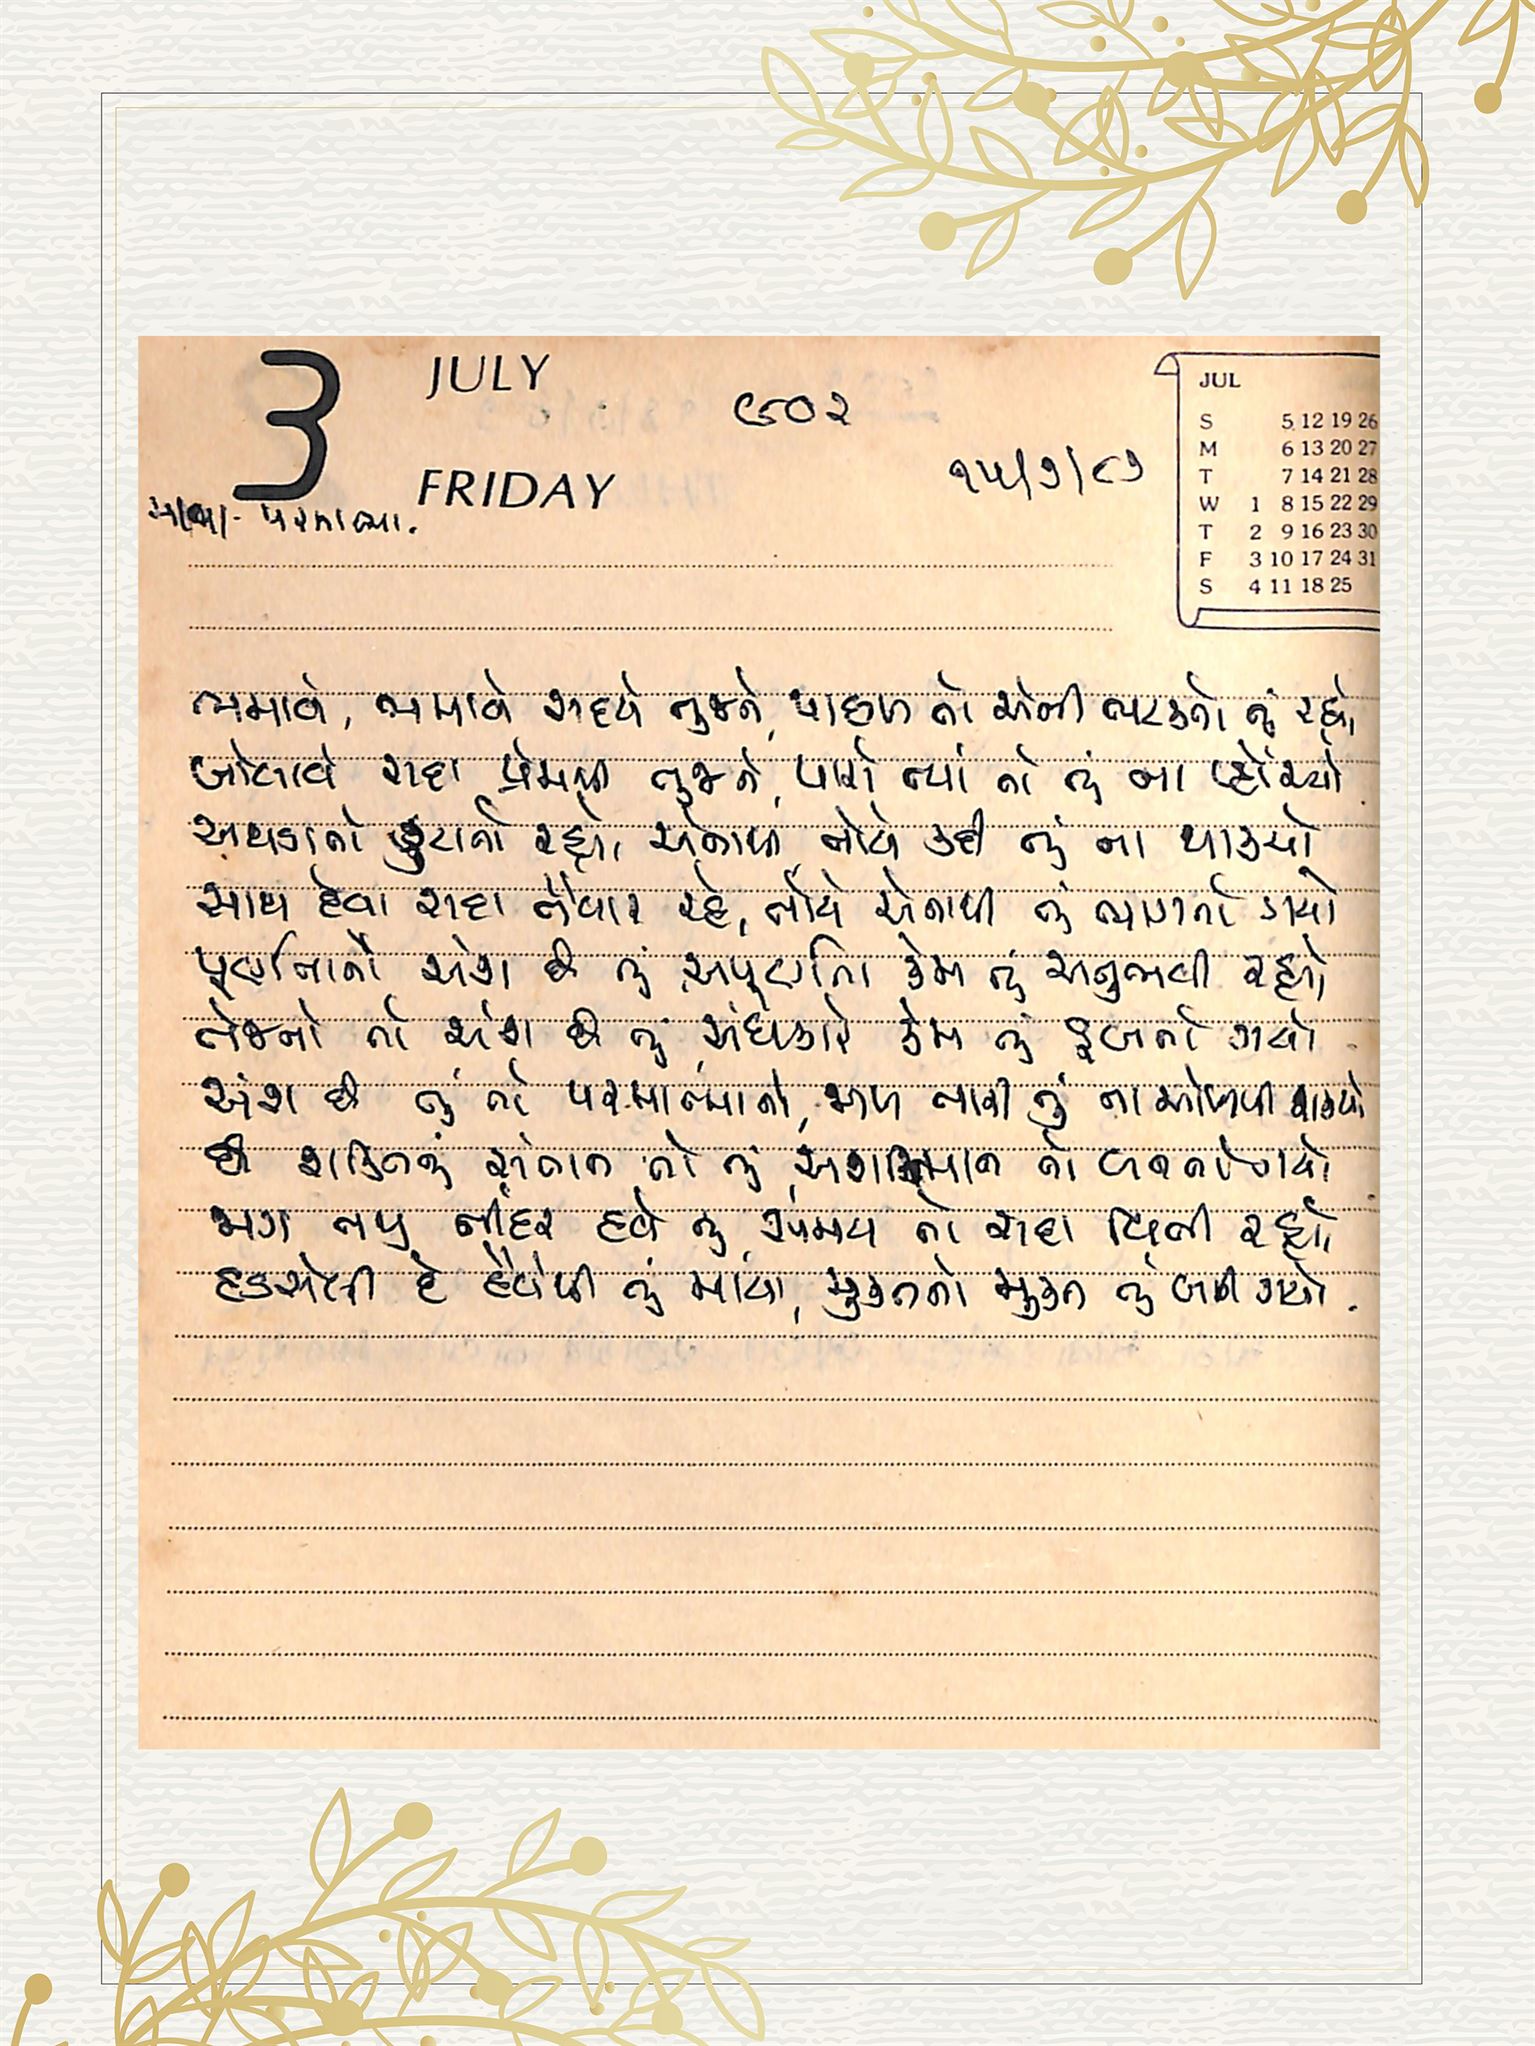 3 JULY
૯૬૦૨
FRIDAY
૧૫/૭/૮૭
JUL
S 5 12 19 26
M 6 13 20 27
T 7 14 21 28
W 1 8 15 22 29
T 2 9 16 23 30
F 3 10 17 24 31
S 4 11 18 25
ભમાવે, ભમાવે સદાયે તુજને, પાછળ તો એની ભટકતો તું રહ્યો
બોલાવે સદા પ્રેમથી તુજને, પાસે ત્યાં તો તું ના પ્હોંચ્યો
અથડાતો કુટાતો રહ્યો, એનાથી તોયે કદી તું ના થાક્યો
સાથ દેવા સદા તૈયાર રહે, તોયે એનાથી તું ભાગતો ગયો
પૂર્ણતાનો અંશ છે તું, અપૂર્ણતા કેમ તું અનુભવી રહ્યો
તેજનો તો અંશ છે તું, અંધકારે કેમ તું ડૂબતો ગયો
અંશ છે તું તો પરમાત્માનો, જાત તારી તું ના ઓળખી શક્યો
છે શક્તિનું સંતાન તો તું, અશક્તિમાન તો બનતો ગયો
જાગ તજી નીંદર હવે તું, સમય તો સદા વિતી રહ્યો
હડસેલી દે હૈયેથી તું માયા, મુક્તનો મુક્ત તું બની ગયો.